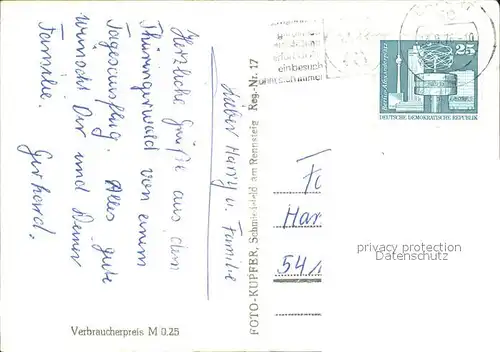 Lieber Harry u. Familie
Herzliche Grüße aus dem
Thüringerwald von einem
Tagesausflug. Alles gute
wünscht Dir und Deiner
Familie.
Gerhard.
FOTO-KUPFER, Schmiedefeld am Rennsteig Reg.-Nr. 17
Verbraucherpreis M 0,25
25
Berlin-Alexanderplatz
DEUTSCHE DEMOKRATISCHE REPUBLIK
Har
54
privacy protection
by Datenschutz